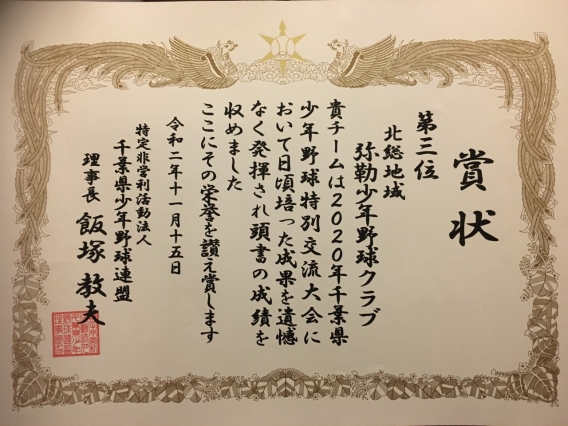 賞状
第三位
北総地域
弥勒少年野球クラブ
貴チームは2020年千葉県
少年野球特別交流大会に
おいて日頃培った成果を遺憾
なく発揮され頭書の成績を
収めました
ここにその栄誉を讃え賞します
令和二年十一月十五日
特定非営利活動法人
千葉県少年野球連盟
理事長 飯塚教夫